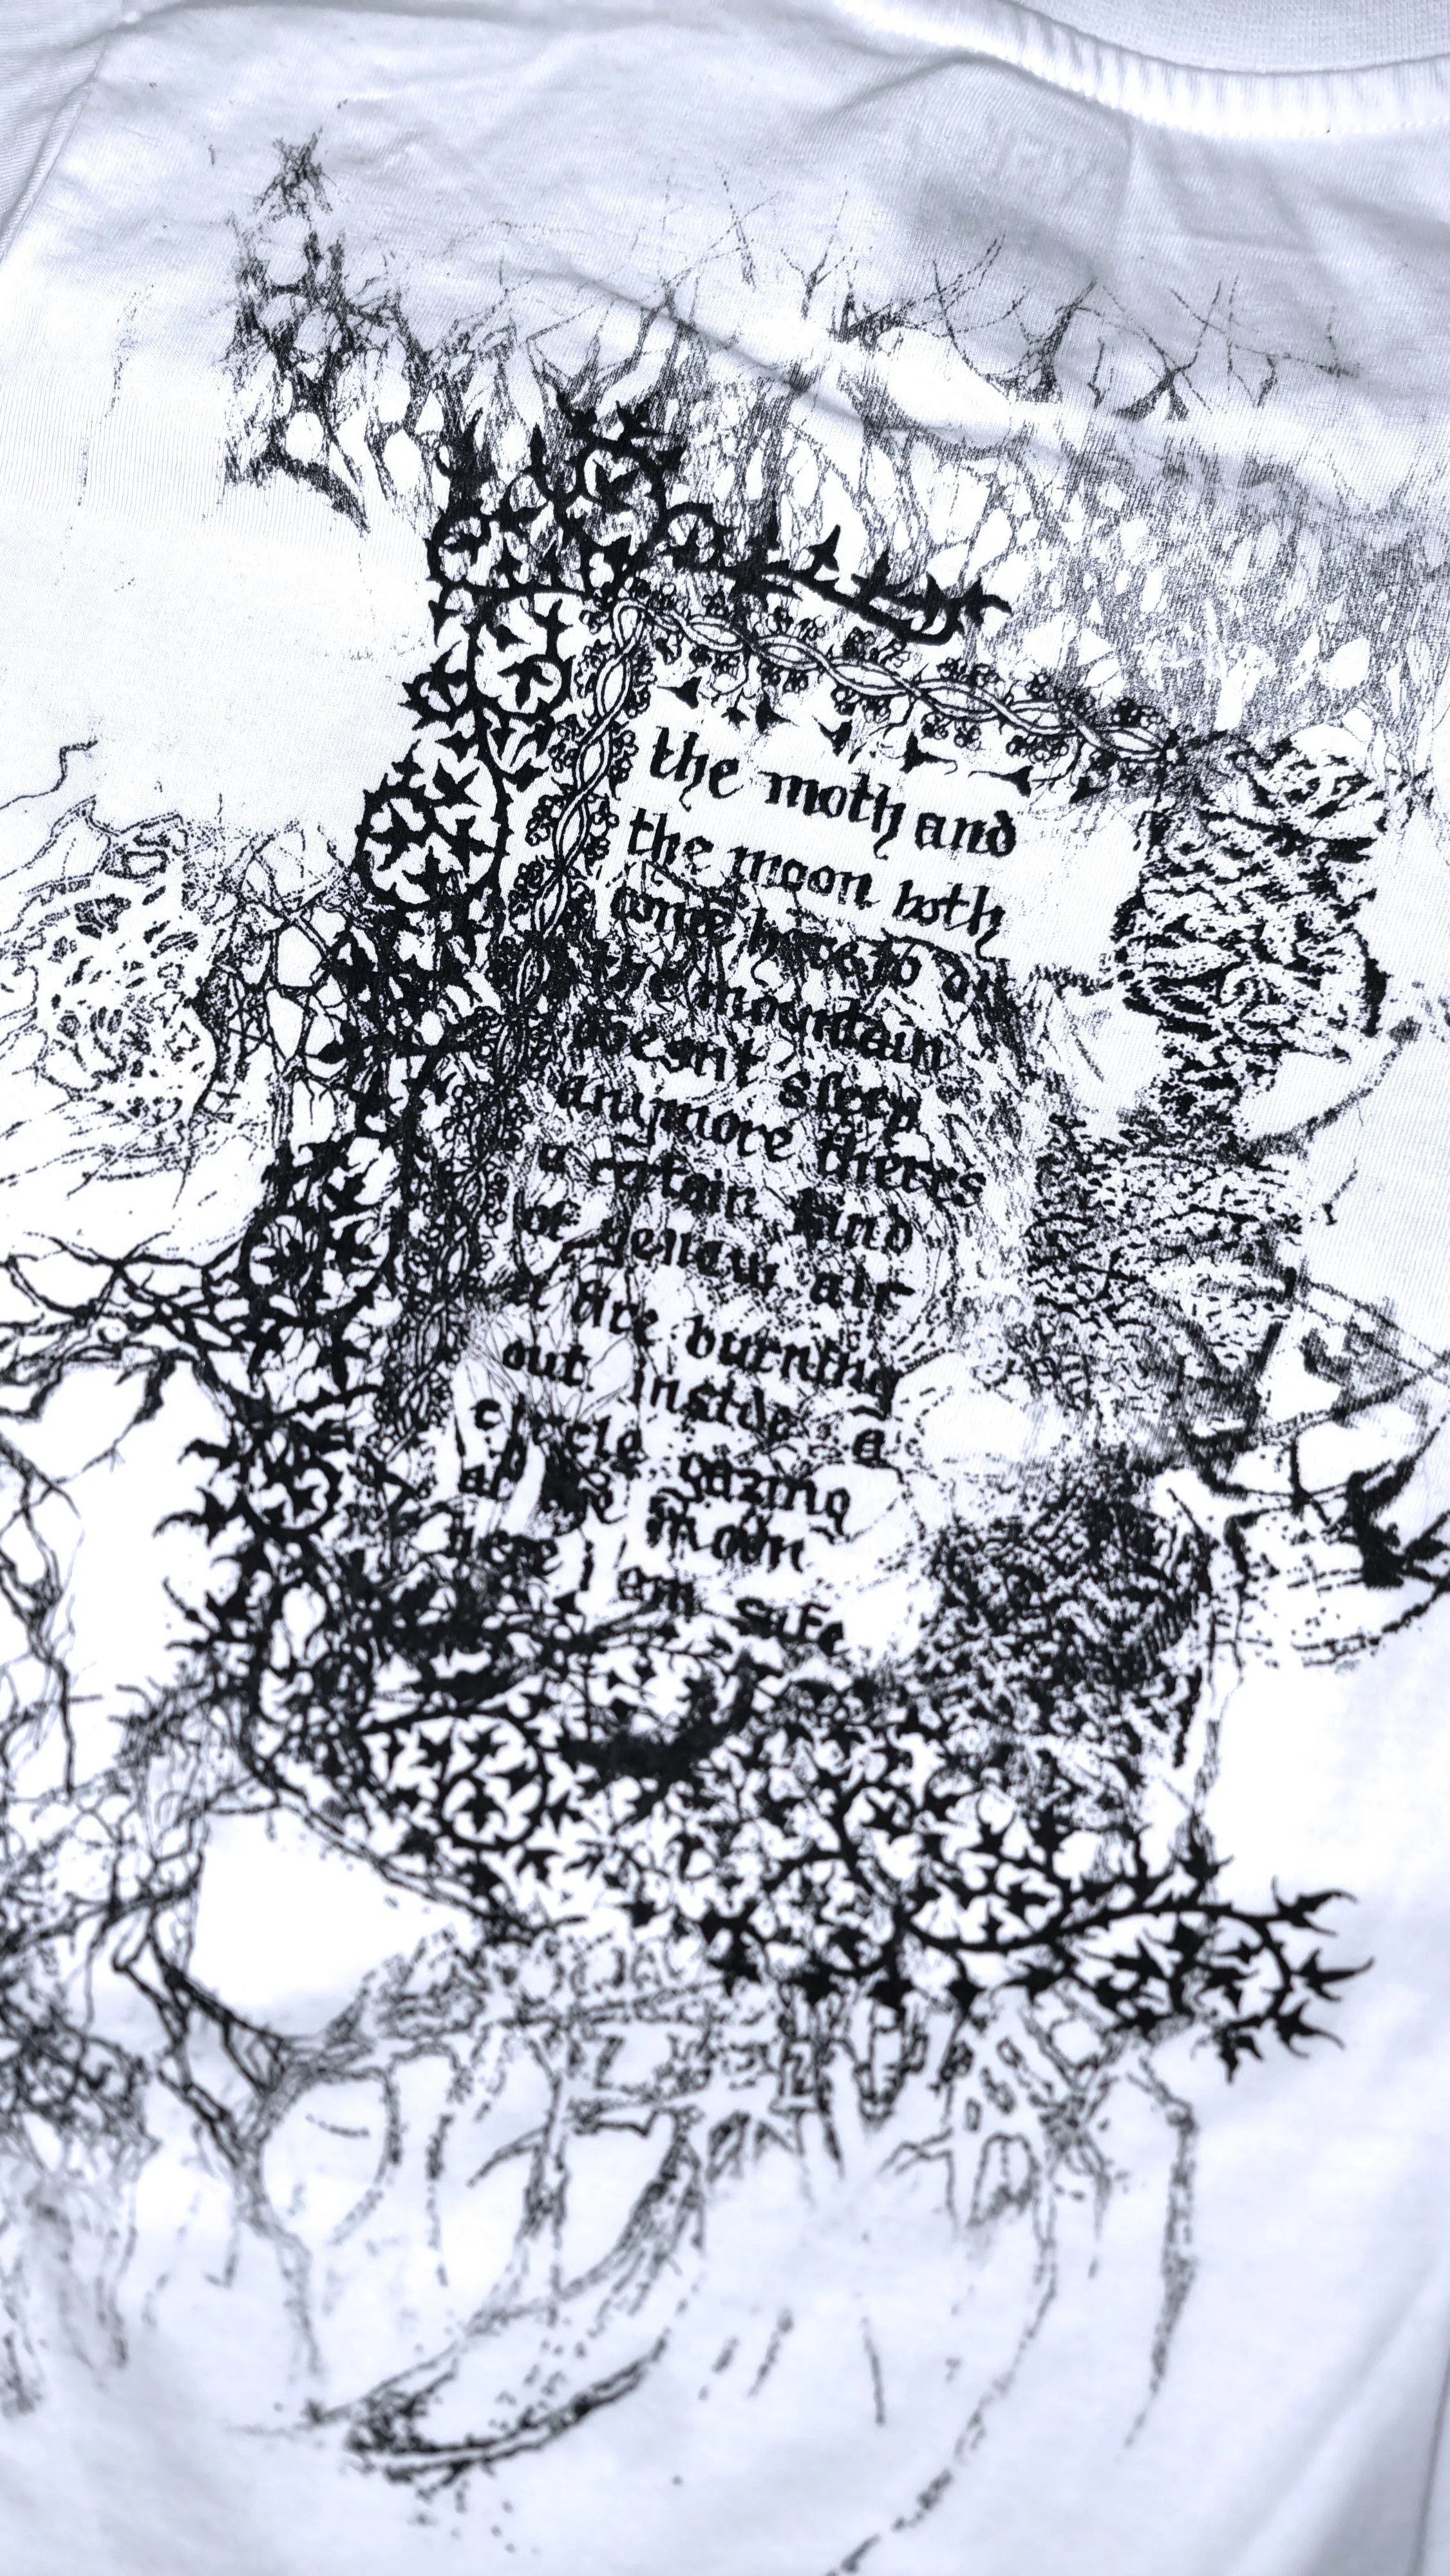 the moth and
the moon both
come here to die
the mountain
doesnt sleep
anymore theres
a certain kind
of yellow air
a fire burning
out inside a
circle gazing
at the moon
here i am safe